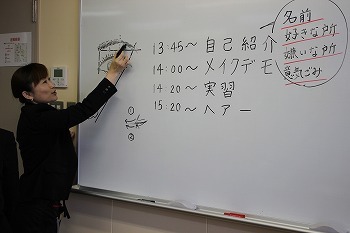 13:45～自己紹介
14:00～メイクデモ
14:20～実習
15:20～ヘアー
名前
好きな所
嫌いな所
意気ごみ
①
②